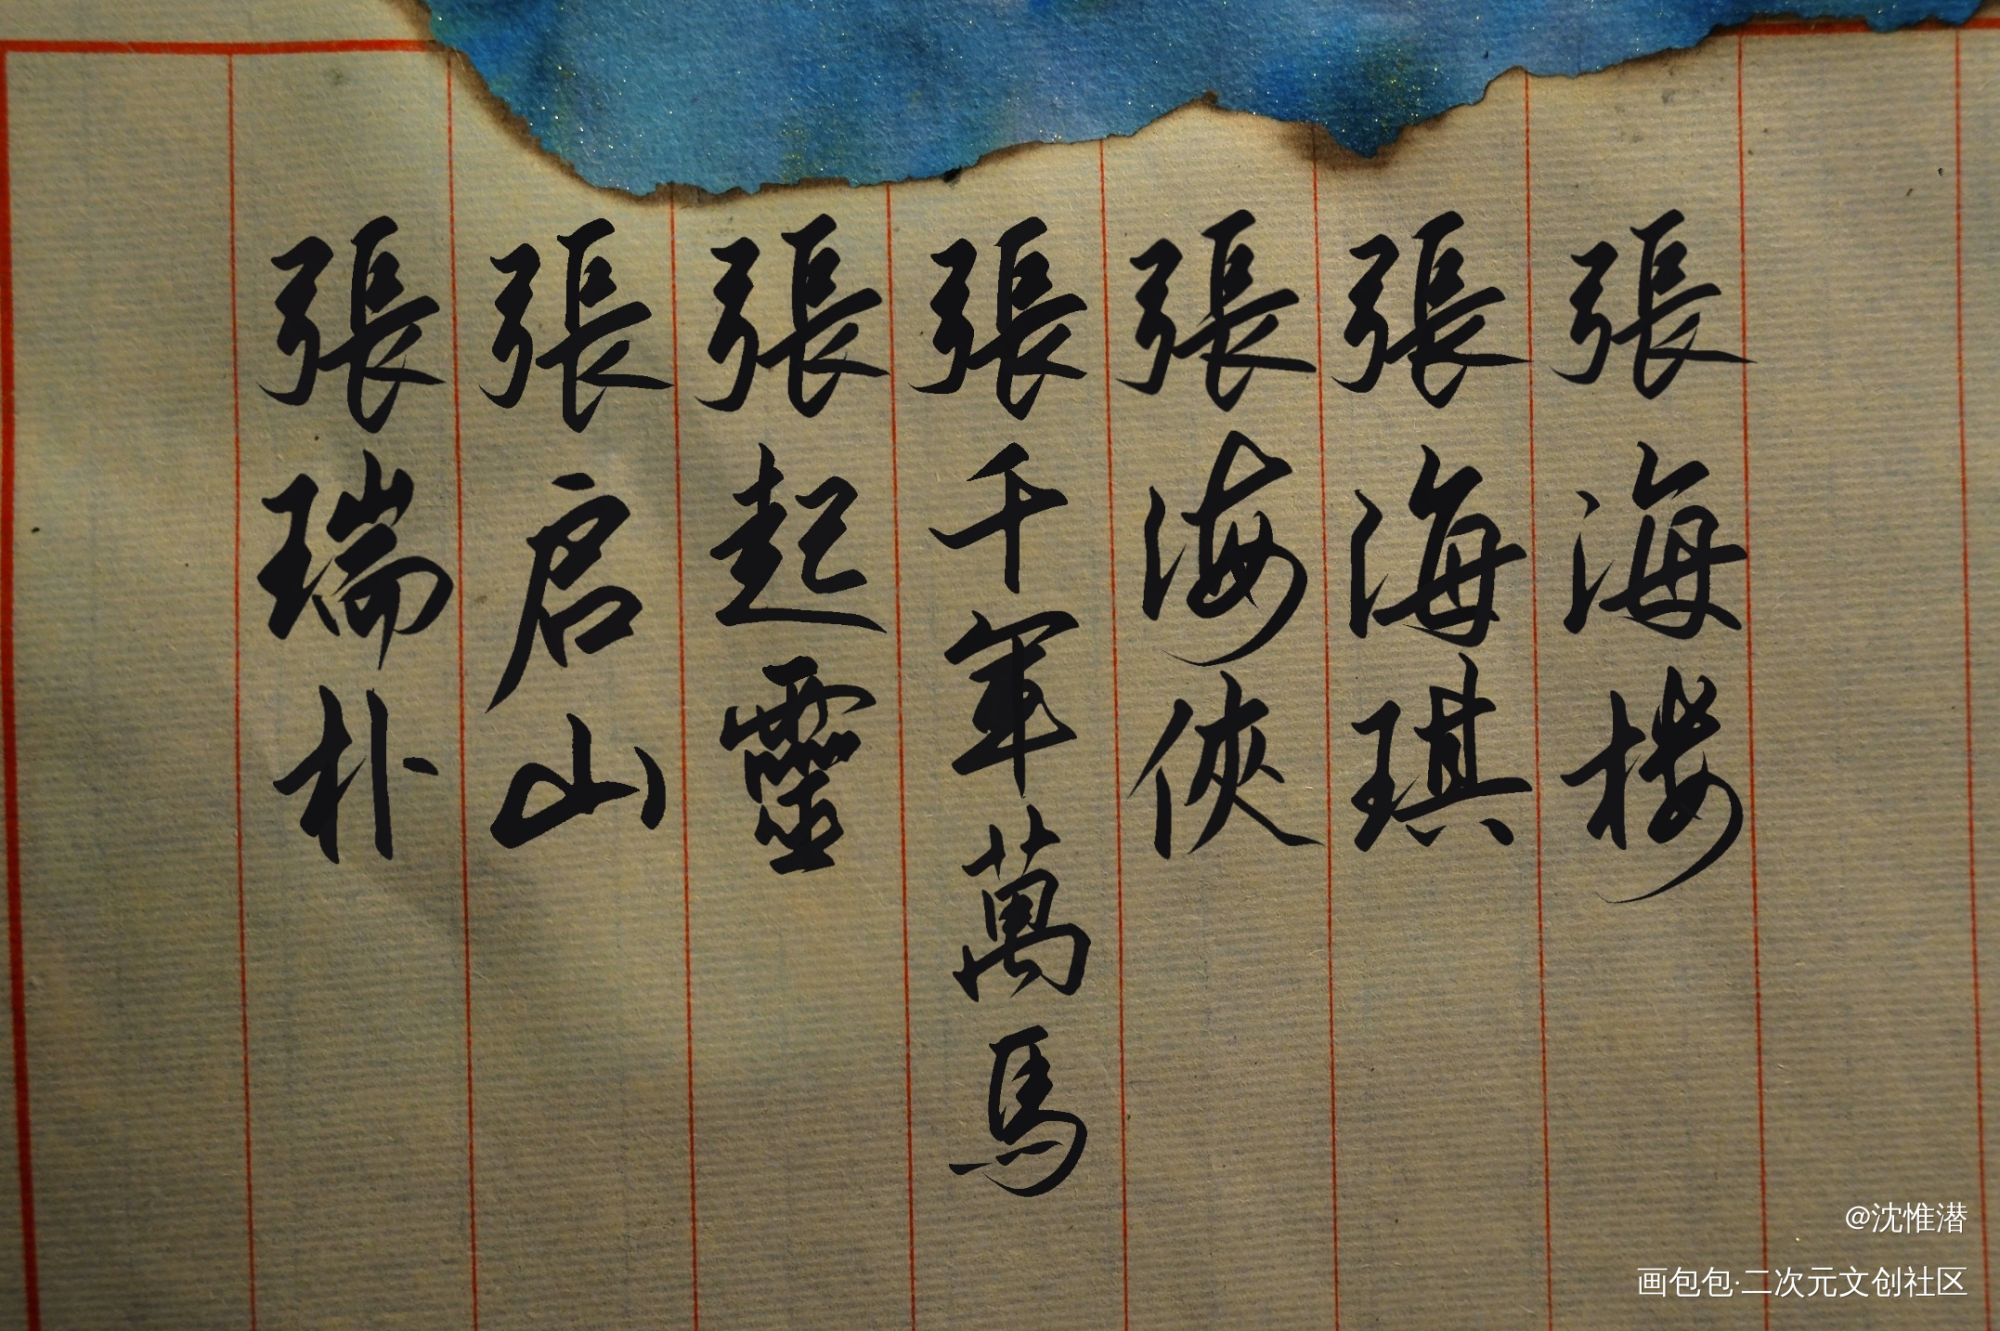 張海楼
張海琪
張海俠
張千军萬馬
張起靈
張启山
張瑞朴
@沈惟潜
画包包·二次元文创社区